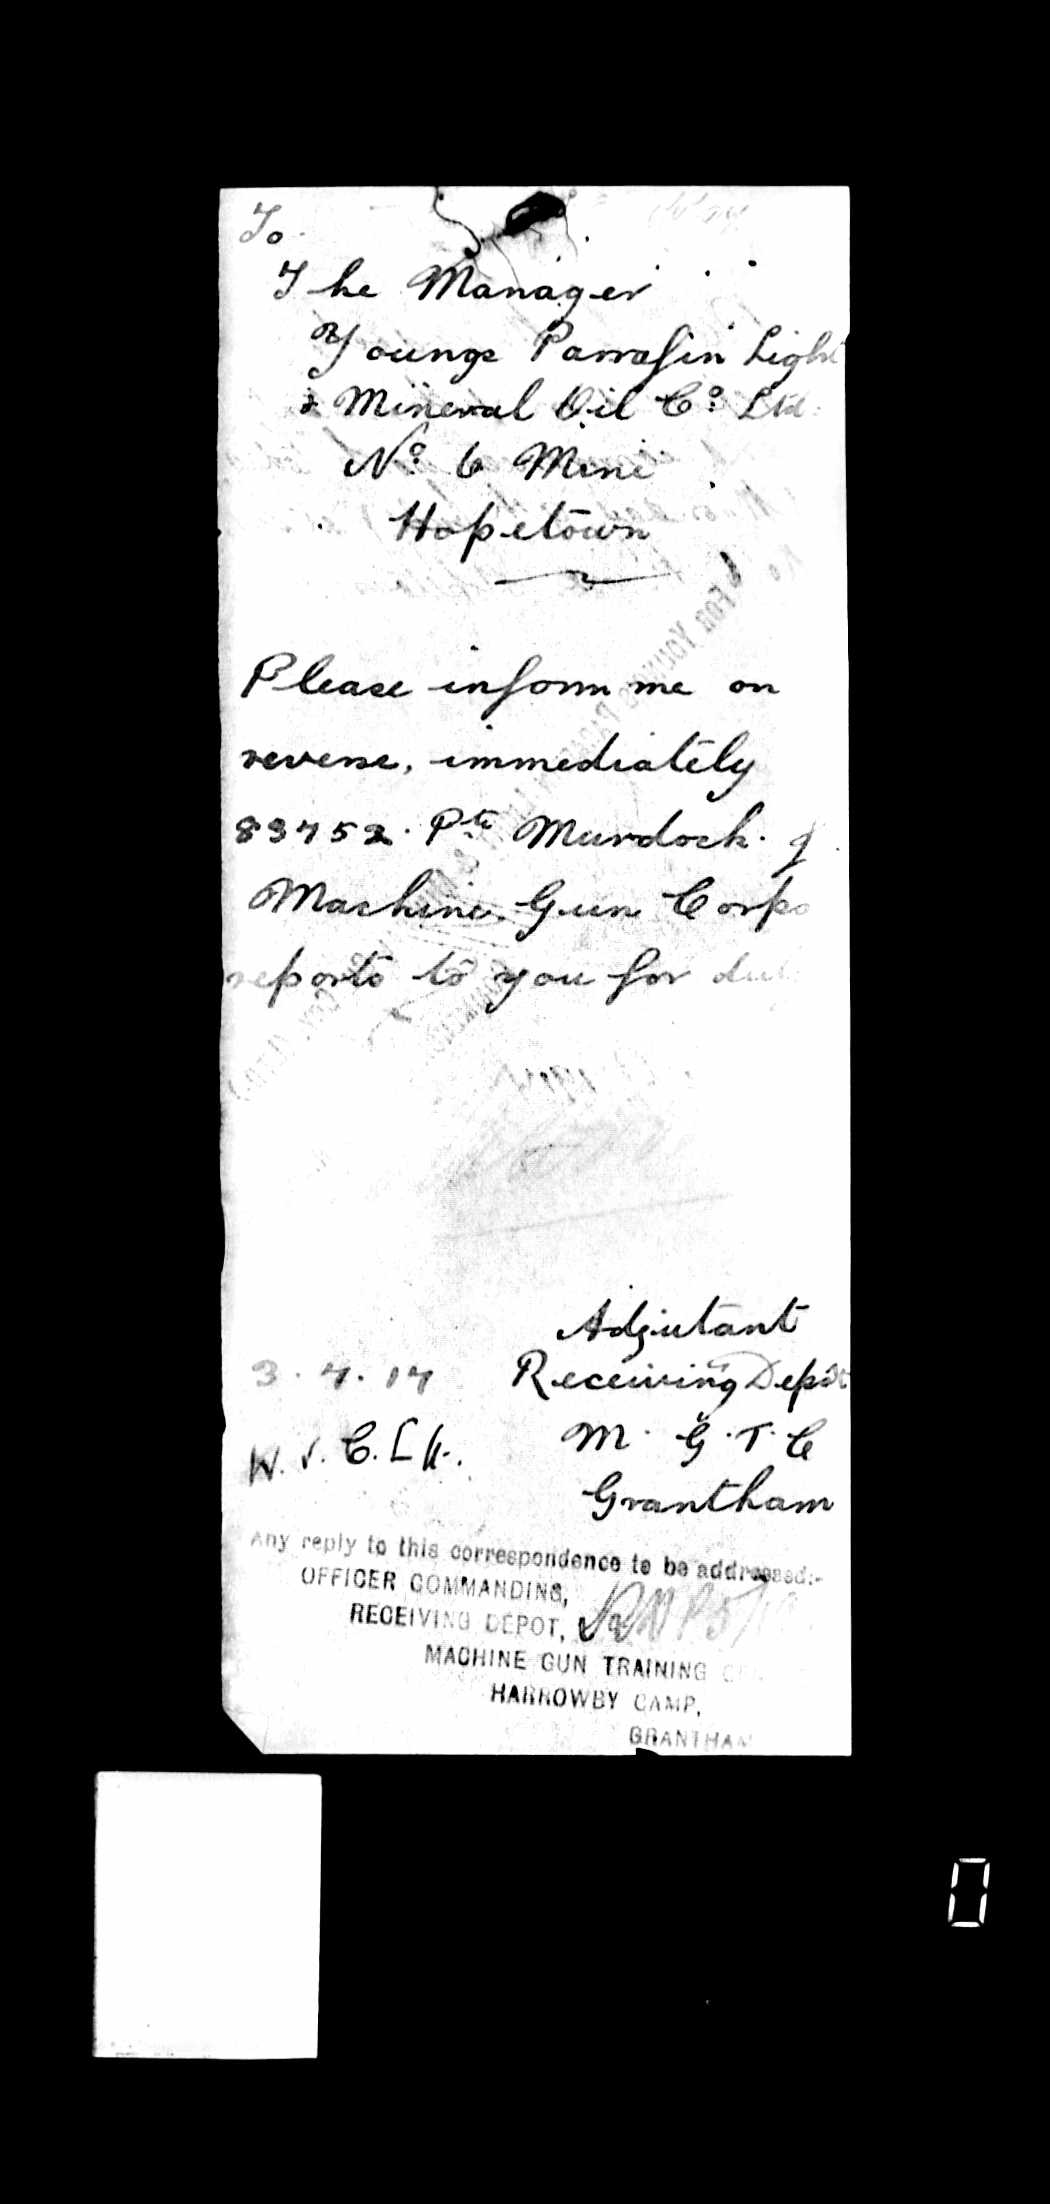 To
The Manager
Youngs Parrafin Light
& Mineral Oil Co. Ltd.
No. 6 Mine
Hopetown
Please inform me on
reverse, immediately
83752. Pte Murdock. J.
Machine Gun Corps
reports to you for
Adjutant
3.7.17 Receiving Depot
M. G. T. C
Grantham
Any reply to this correspondence to be addressed:-
OFFICER COMMANDING,
RECEIVING DEPOT,
MACHINE GUN TRAINING
HARROWBY CAMP,
GRANTHAM
0